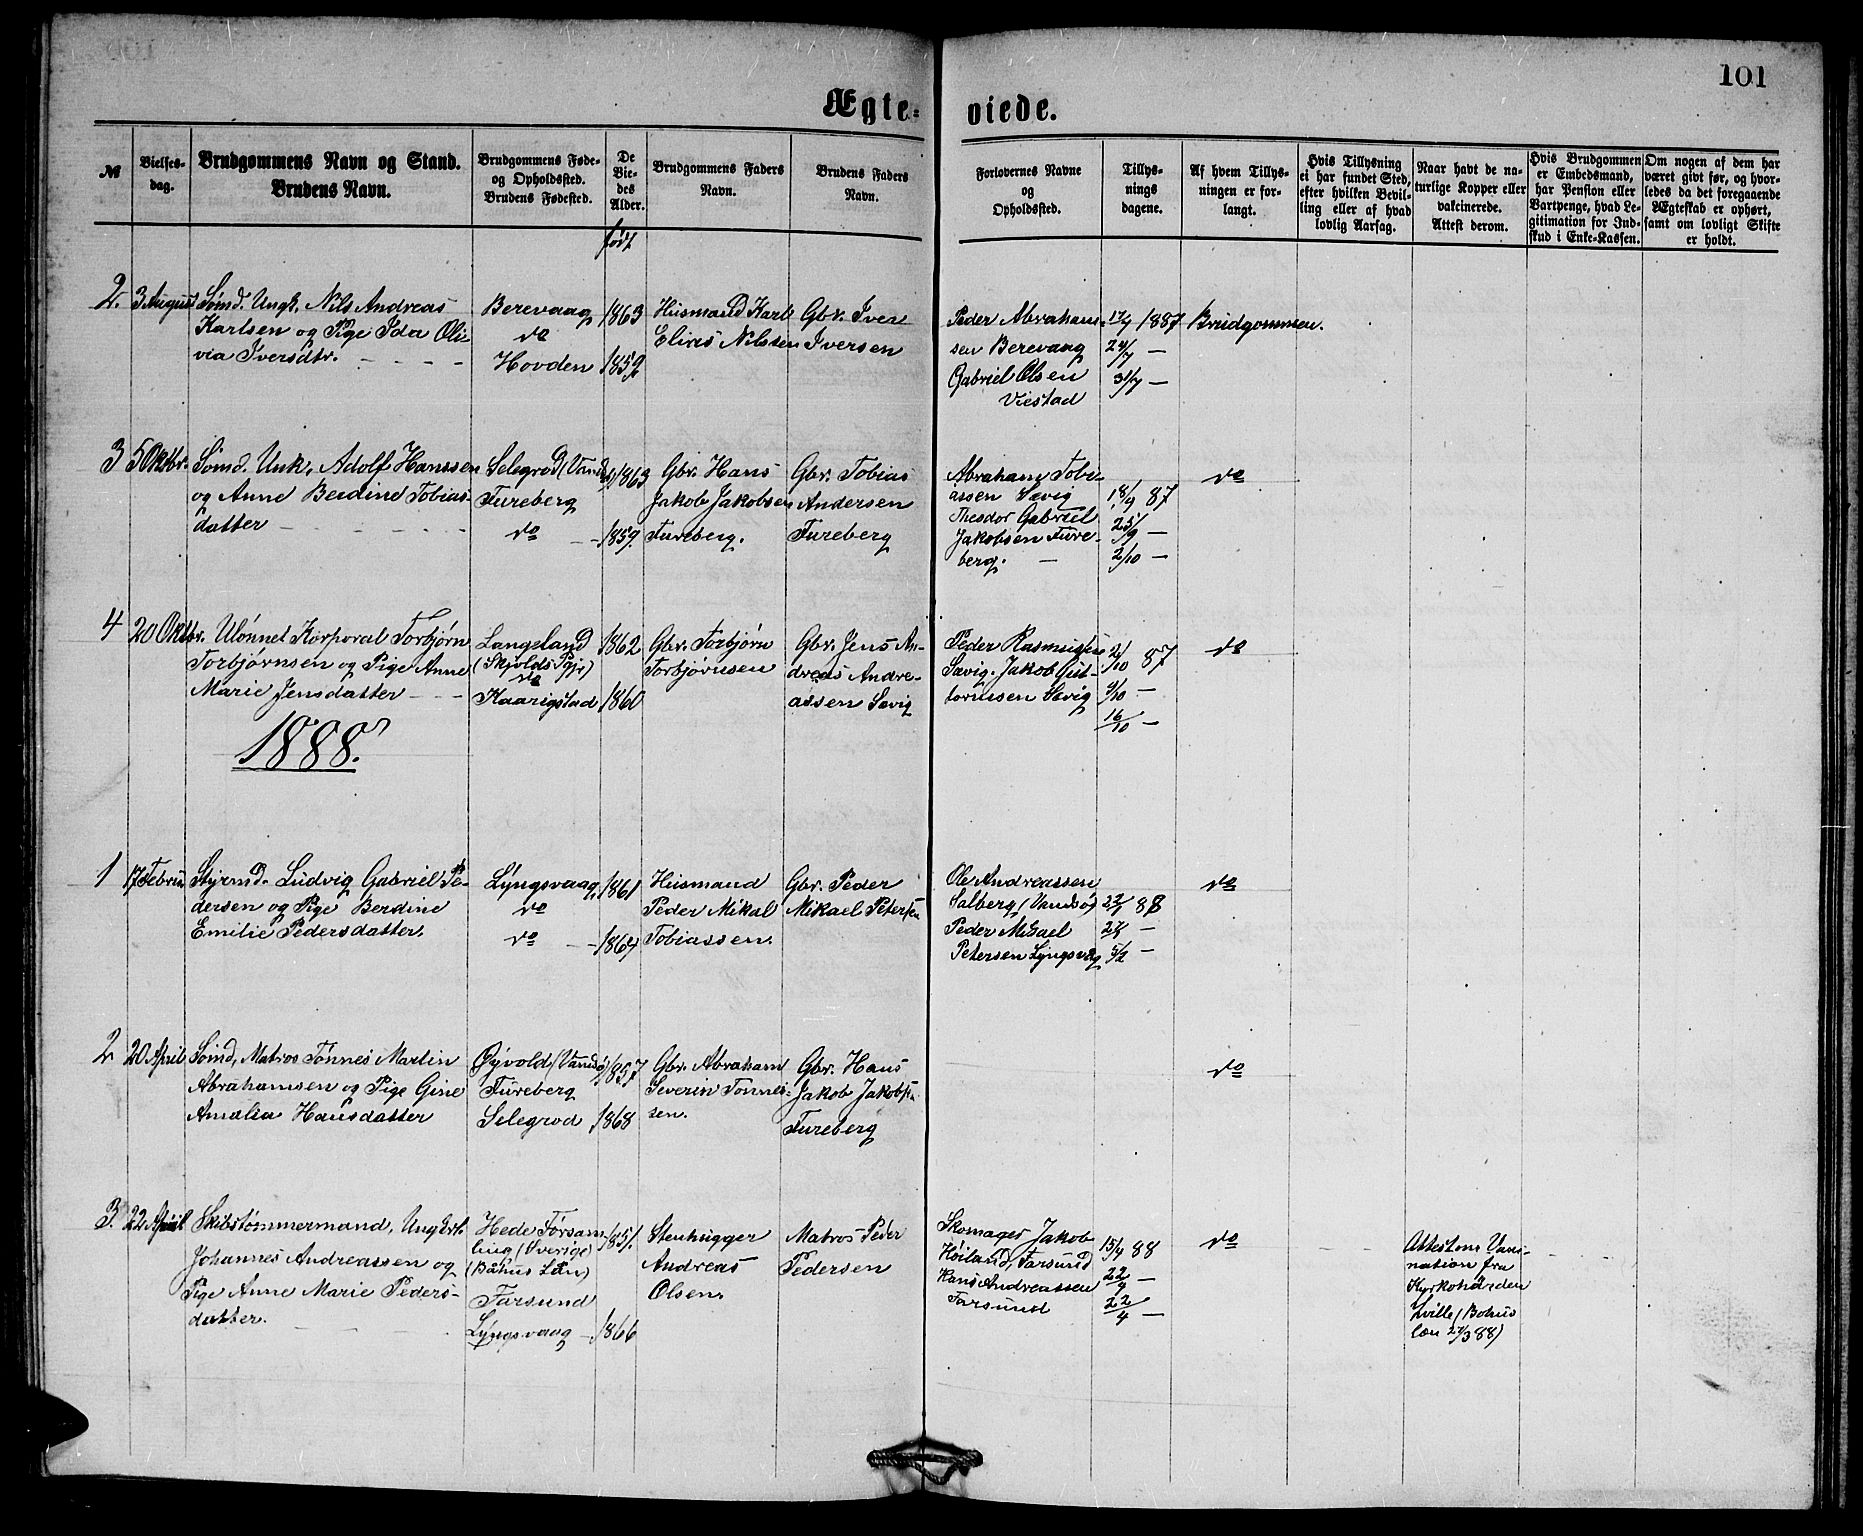 101
Ægte- viede.
№
Vielses-
dag.
Brudgommens Navn og Stand.
Brudens Navn.
Brudgommens Føde-
og Opholdsted.
Brudens Fødested.
De
Vie-
des
Alder.
Brudgommens Faders
Navn.
Brudens Faders
Navn.
Forlovernes Navne
og
Opholdsted.
Tillys-
nings
dagene.
Af hvem Tillys-
ningen er for-
langt.
Hvis Tillysning
ei har fundet Sted,
efter hvilken Bevil-
ling eller af hvad
lovlig Aarsag.
Naar havt de na-
turlige Kopper eller
vakcinerede.
Attest derom.
Hvis Brudgommen
er Embedsmand,
har Pension eller
Vartpenge, hvad Le-
gitimation for Ind-
skud i Enke-Kassen.
Om nogen af dem har
været givt før, og hvor-
ledes da det foregaaende
Ægteskab er ophørt,
samt om lovligt Skifte
er holdt.
født
2. 3 August
Sømd. Ungk. Nils Andreas
Karlsen og Pige Ida Oli-
via Iversdtr. - - - -
Berevaag
do
Hovden
1863
1859
Husmand Karl
Elias Nilssen
Gbr. Iver
Iversen
Peder Abraham-
sen Berevaag
Gabriel Olsen
Viestad
17/7 1887
24/7 -
31/7 -
Brudgommen.
3 5 Oktbr.
Sømd. Unk. Adolf Hanssen
og Anne Berdine Tobias-
datter - - - - -
Selegrod (Vandsø)
Tureberg
do -
1863
1859.
Gbr. Hans
Jakob Jakobsen
Tureberg.
Gbr. Tobias
Andersen
Tureberg
Abraham Tobi-
assen Sævig
Theodor Gabriel
Jakobsen Ture-
berg. -
18/9 87
25/9 -
2/10 -
do
4 20 Oktbr.
Ulønnet Korporal Torbjørn
Torbjørnsen og Pige Anne
Marie Jensdatter - - -
Langeland
(Skjolds Pgj.)
do
Kaarigstad
1862
1860
Gbr. Torbjørn
Torbjørnsen
Gbr. Jens An-
dreas Andre-
assen Sævig
Peder Rasmussen
Sævig. Jakob Gut-
tormsen Sævig
2/10 87
9/10 -
16/10 -
do
1888.
1 17 Februar
Styrmd. Ludvig Gabriel Pe-
dersen og Pige Berdine
Emilie Pedersdatter.
Lyngsvaag
do
do -
1861
1864
Husmand
Peder Mikal
Tobiassen.
Gbr. Peder
Mikael Petersen
Ole Andreassen
Salberg (Vandsø)
Peder Mikael
Petersen Lyngsvåg
22/1 88
29/1 -
5/2 -
do
2 20 April
Sømd, Matros Tønnes Martin
Abrahamsen og Pige Gine
Amalia Hansdatter
Øyvold (Vandsø)
Tureberg
Selegrod
1857
1868
Gbr. Abraham
Severin Tønnes-
sen.
Gbr. Hans
Jakob Jakobsen
Tureberg
do
3. 22 April
Skibstømmermand, Ungkrl.
Johannes Andreassen og
Pige Anne Marie Peders-
datter. - - - -
Hede Forsam-
ling (Sverige)
(Båhus Län)
Farsund
Lyngsvaag -
1851.
1866
Stenhugger
Andreas
Olsen.
Matros Peder
Pedersen
Skomager Jakob
Høiland, Farsund
Hans Andreassen
Farsund
15/4 88
22/4 -
22/4 -
do
Attest om Vacsi-
nation fra
Kyrkohärden
Sville (Bohus
län 27/3 88)